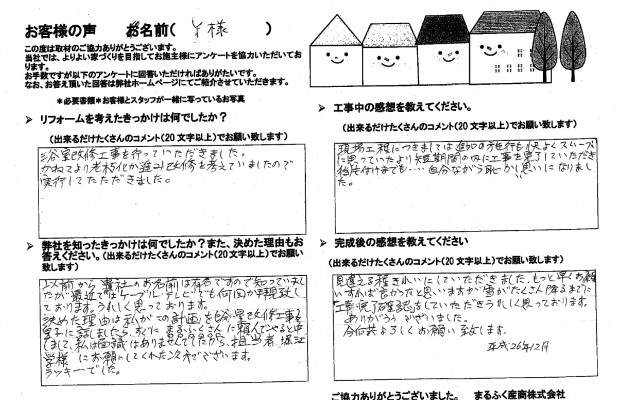 お客様の声 お名前( Y様 )
この度は取材のご協力ありがとうございます。
当社では、よりよい家づくりを目指してお施主様にアンケートを協力いただいております。
お手数ですが以下のアンケートに回答いただければありがたいです。
なお、お答え頂いた回答は弊社ホームページにてご紹介させていただきます。
*必要書類*お客様とスタッフが一緒に写っているお写真
➤ リフォームを考えたきっかけは何でしたか?
(出来るだけたくさんのコメント(20文字以上)でお願い致します)
浴室改修工事を行っていただきました。
かねてより老朽化が進み改修を考えていましたので
実行してただきました。
➤ 弊社を知ったきっかけは何でしたか?また、決めた理由もお
答えください。(出来るだけたくさんのコメント(20文字以上)でお願い
致します)
以前から貴社のお名前は有名ですので知っていまし
たが最近ではケーブルテレビでも何回か拝見致し
ております。うれしく思っております。
決めた理由は私がこの計画を(浴室改修工事を)
室子に話しましたら、すぐにまるふくさんに頼んでやると申
しまして、私は面識はありませんでしたが、担当者、堀江
学様にお願いしてくれた次第でございます。
ラッキーでした。
➤ 工事中の感想を教えてください。
(出来るだけたくさんのコメント(20文字以上)でお願い致します)
現場工程につきましては追加の施行も快よくスムーズ
に思っていたより短期間の内に工事を完了していただき
後片付けまでも・・・・自分ながら恥かし思いになりまし
た。
➤ 完成後の感想を教えてください
(出来るだけたくさんのコメント(20文字以上)でお願い致します)
見違える程きれいにしていただきました。もっと早くお願
いすれば良かったと思いますが雪がたくさん降るまでに
工事完了確認をしていただきうれしく思っております。
ありがとうございました。
今后共よろしくお願い致します。
平成26年12月
ご協力ありがとうございました。 まるふく産商株式会社